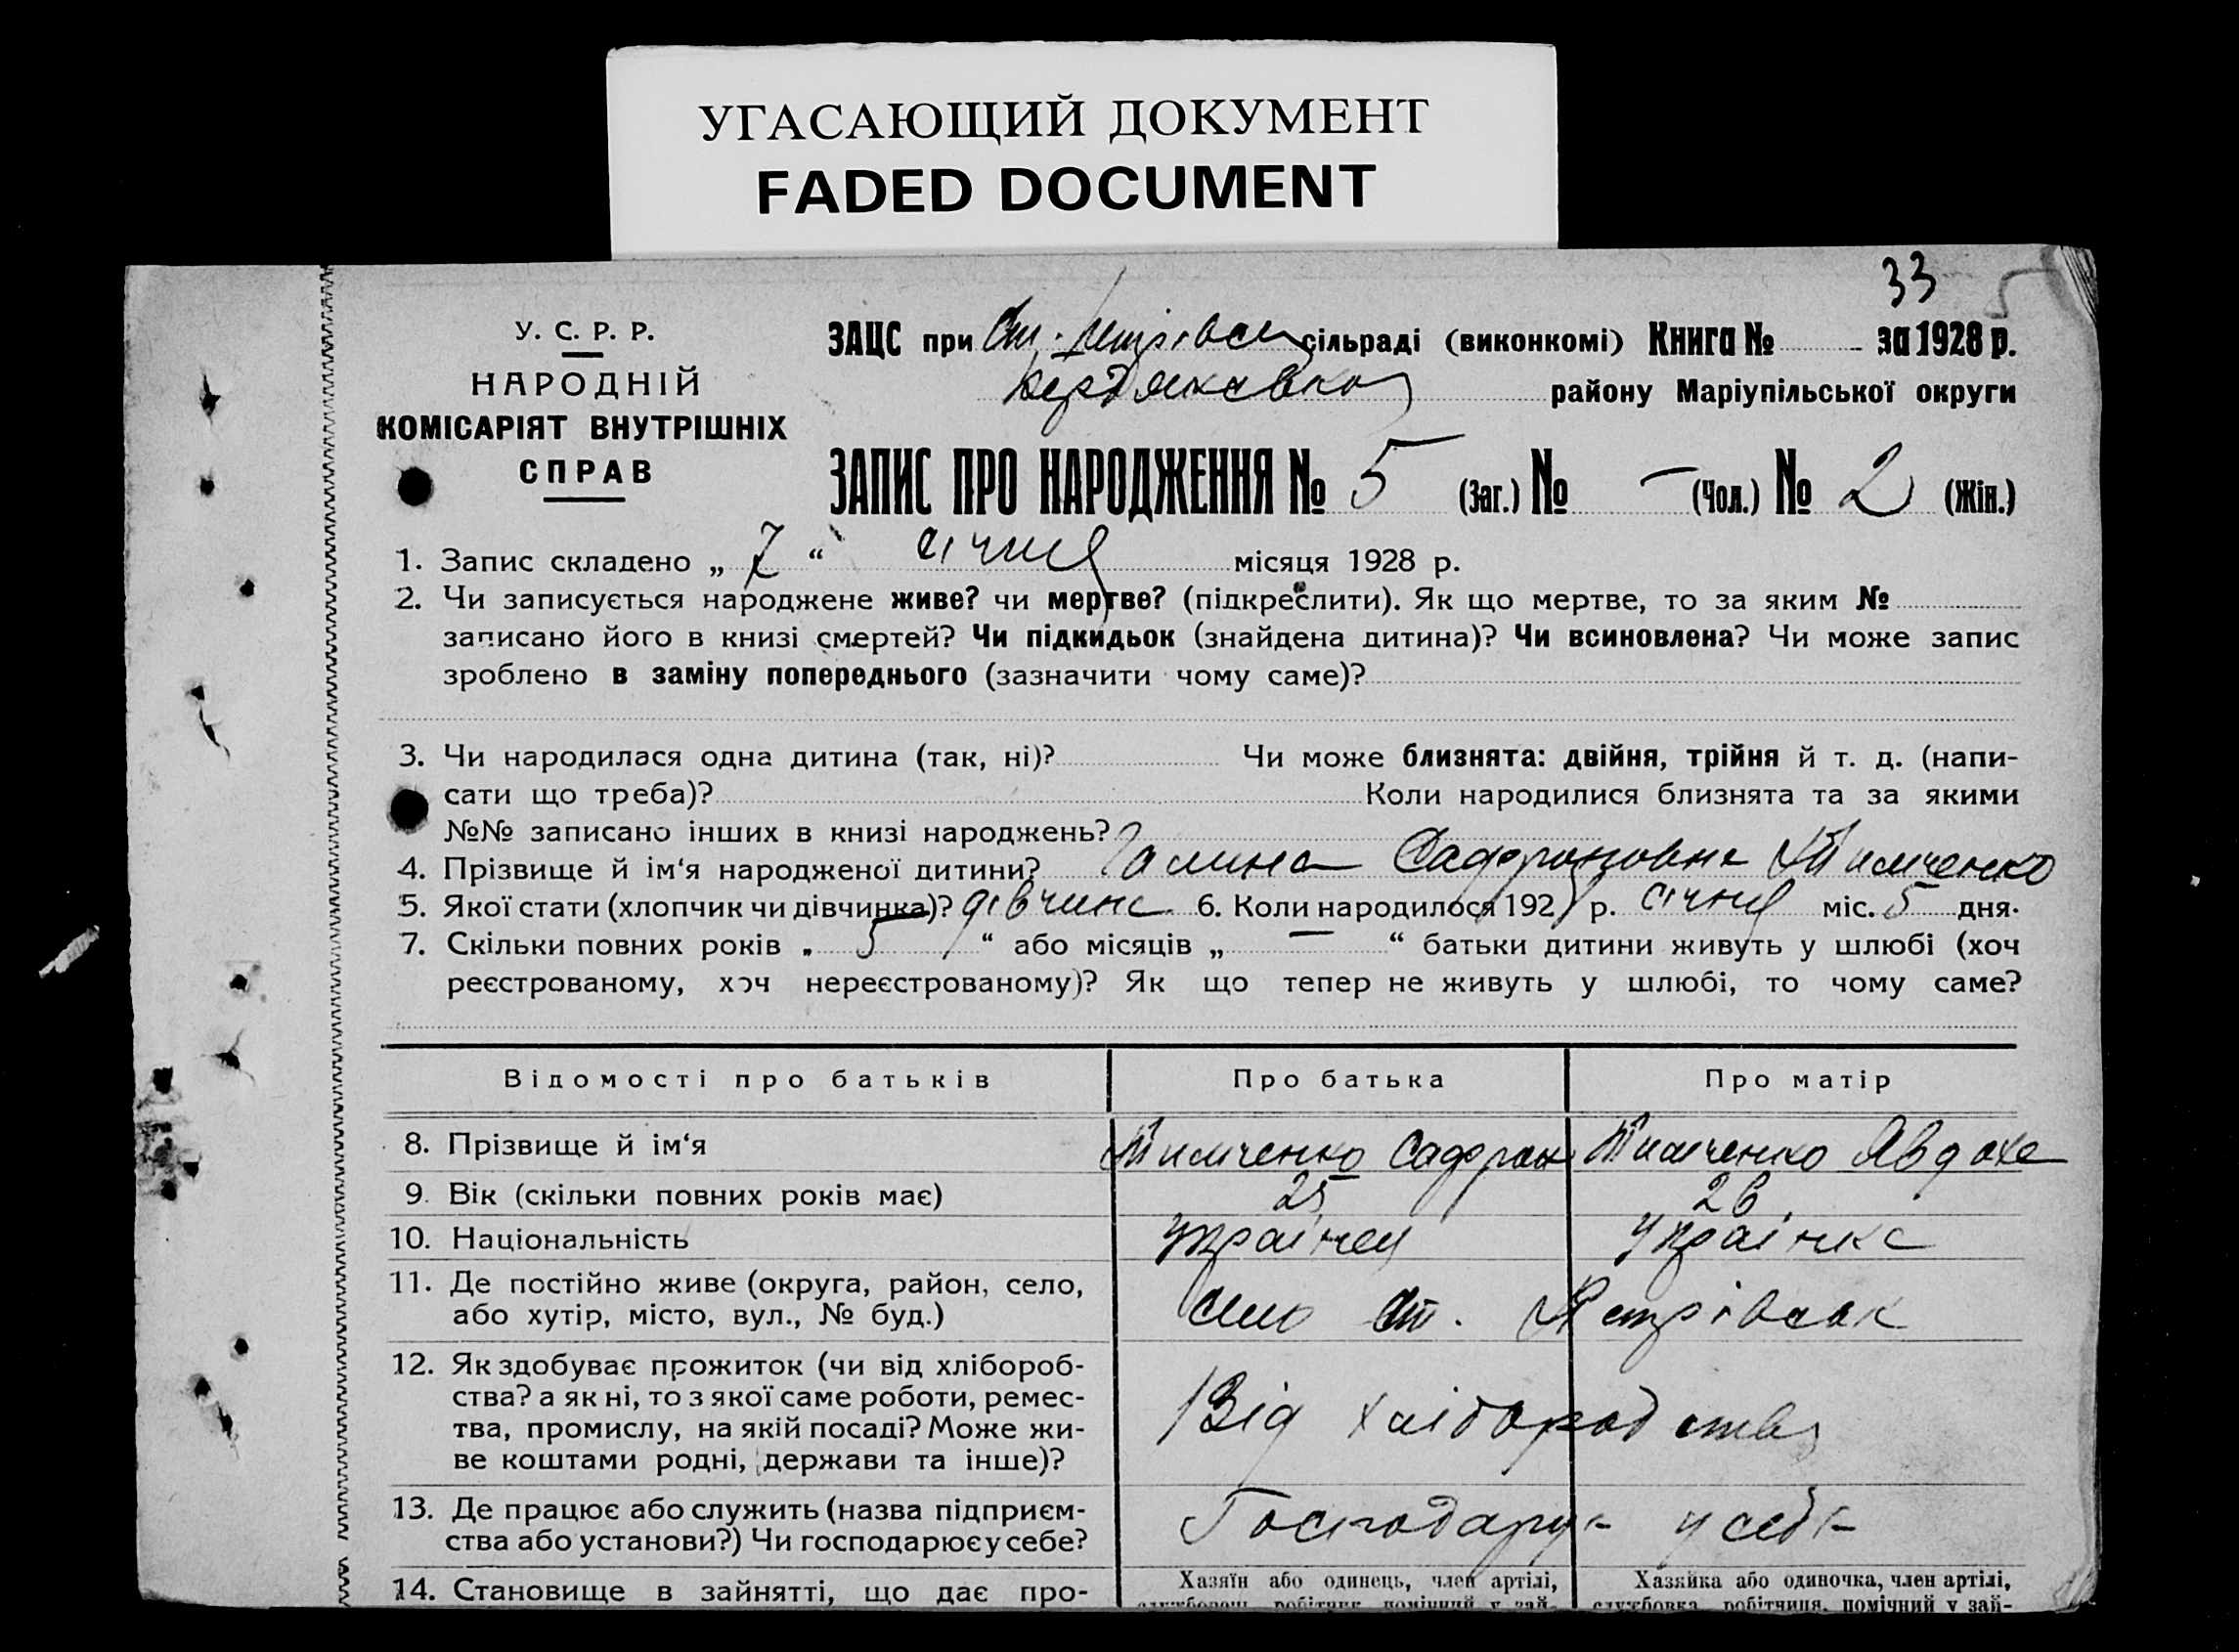 УГАСАЮЩИЙ ДОКУМЕНТ
FADED DOCUMENT
33
У. С. Р. Р.
НАРОДНІЙ
КОМІСАРІЯТ ВНУТРІШНІХ
СПРАВ
ЗАЦС при Ст. Петрівск сільраді (виконкомі) Книга № за 1928 р.
району Маріупільської округи
ЗАПИС ПРО НАРОДЖЕННЯ № 5 (Заг.) № — (Чол.) № 2 (Жін.)
1. Запис складено „ 7 “ січня місяця 1928 р.
2. Чи записується народжене живе? чи мертве? (підкреслити). Як що мертве, то за яким №
записано його в книзі смертей? Чи підкидьок (знайдена дитина)? Чи всиновлена? Чи може запис
зроблено в заміну попереднього (зазначити чому саме)?
3. Чи народилася одна дитина (так, ні)? Чи може близнята: двійня, трійня й т. д. (напи-
сати що треба)? Коли народилися близнята та за якими
№№ записано інших в книзі народжень?
4. Прізвище й ім‘я народженої дитини? Галина Сафроновна Тимченко
5. Якої стати (хлопчик чи дівчинка)? дівчина 6. Коли народилося 192 р. січня міс. 5 дня.
7. Скільки повних років „ 5 “ або місяців „ — “ батьки дитини живуть у шлюбі (хоч
реєстрованому, хоч нереєстрованому)? Як що тепер не живуть у шлюбі, то чому саме?
Відомості про батьків Про батька Про матір
8. Прізвище й ім‘я Тимченко Сафрон Тимченко Явдоха
9. Вік (скільки повних років має) 25 26
10. Національність Українец Українка
11. Де постійно живе (округа, район, село,
або хутір, місто, вул., № буд.) Село Ст. Петрівськ
12. Як здобуває прожиток (чи від хлібороб-
ства? а як ні, то з якої саме роботи, ремес-
тва, промислу, на якій посаді? Може жи-
ве коштами родні, держави та інше)?
Від хліборобства
13. Де працює або служить (назва підприєм-
ства або установи?) Чи господарює у себе?
Господарує у себе
14. Становище в зайнятті, що дає про-
Хазяїн або одинець, член артілі,
службовець, робітник, помічний у зай-
Хазяйка або одиночка, член артілі,
службовка, робітниця, помічний у зай-